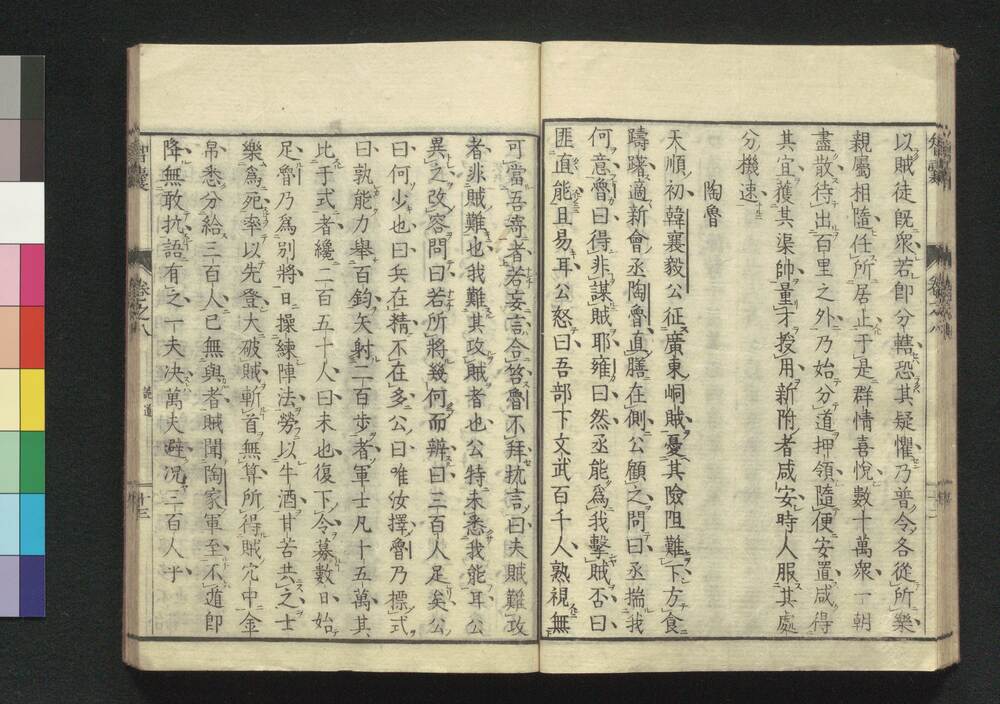 以賊徒既衆若即分轄恐其疑懼乃普令各從所樂
親屬相隨任所居止于是群情喜悅數十萬衆一朝
盡散待出百里之外乃始分道押領隨便安置咸得
其宜獲其渠帥量才授用新附者咸安時人服其處
分機速
陶魯
天順初韓襄毅公征廣東峒賊憂其險阻難下方食
躊躇適新會丞陶魯直膳在側公顧之問曰丞揣我
何意魯曰得非謀賊耶雍曰然丞能爲我擊賊否曰
匪直能且易耳公怒曰吾部下文武百千人熟視無
可當吾寄者若妄言合笞魯不拜抗言曰夫賊難攻
者非賊難也我難其攻賊者也公特未悉我能耳公
異之改容問曰若所將幾何而辦曰三百人足矣公
曰何少也曰兵在精不在多公曰唯汝擇魯乃標式
曰孰能力舉百鈞矢射二百步者軍士凡十五萬其
比于式者纔二百五十人曰未也復下令募數日始
足魯乃爲別將日操練陣法勞以牛酒甘苦共之士
樂爲死率以先登大破賊斬首無算所得賊穴中金
帛悉分給三百人已無與者賊聞陶家軍至不遁即
降無敢抗語有之一夫決萬夫避况三百人乎
智囊
卷之八